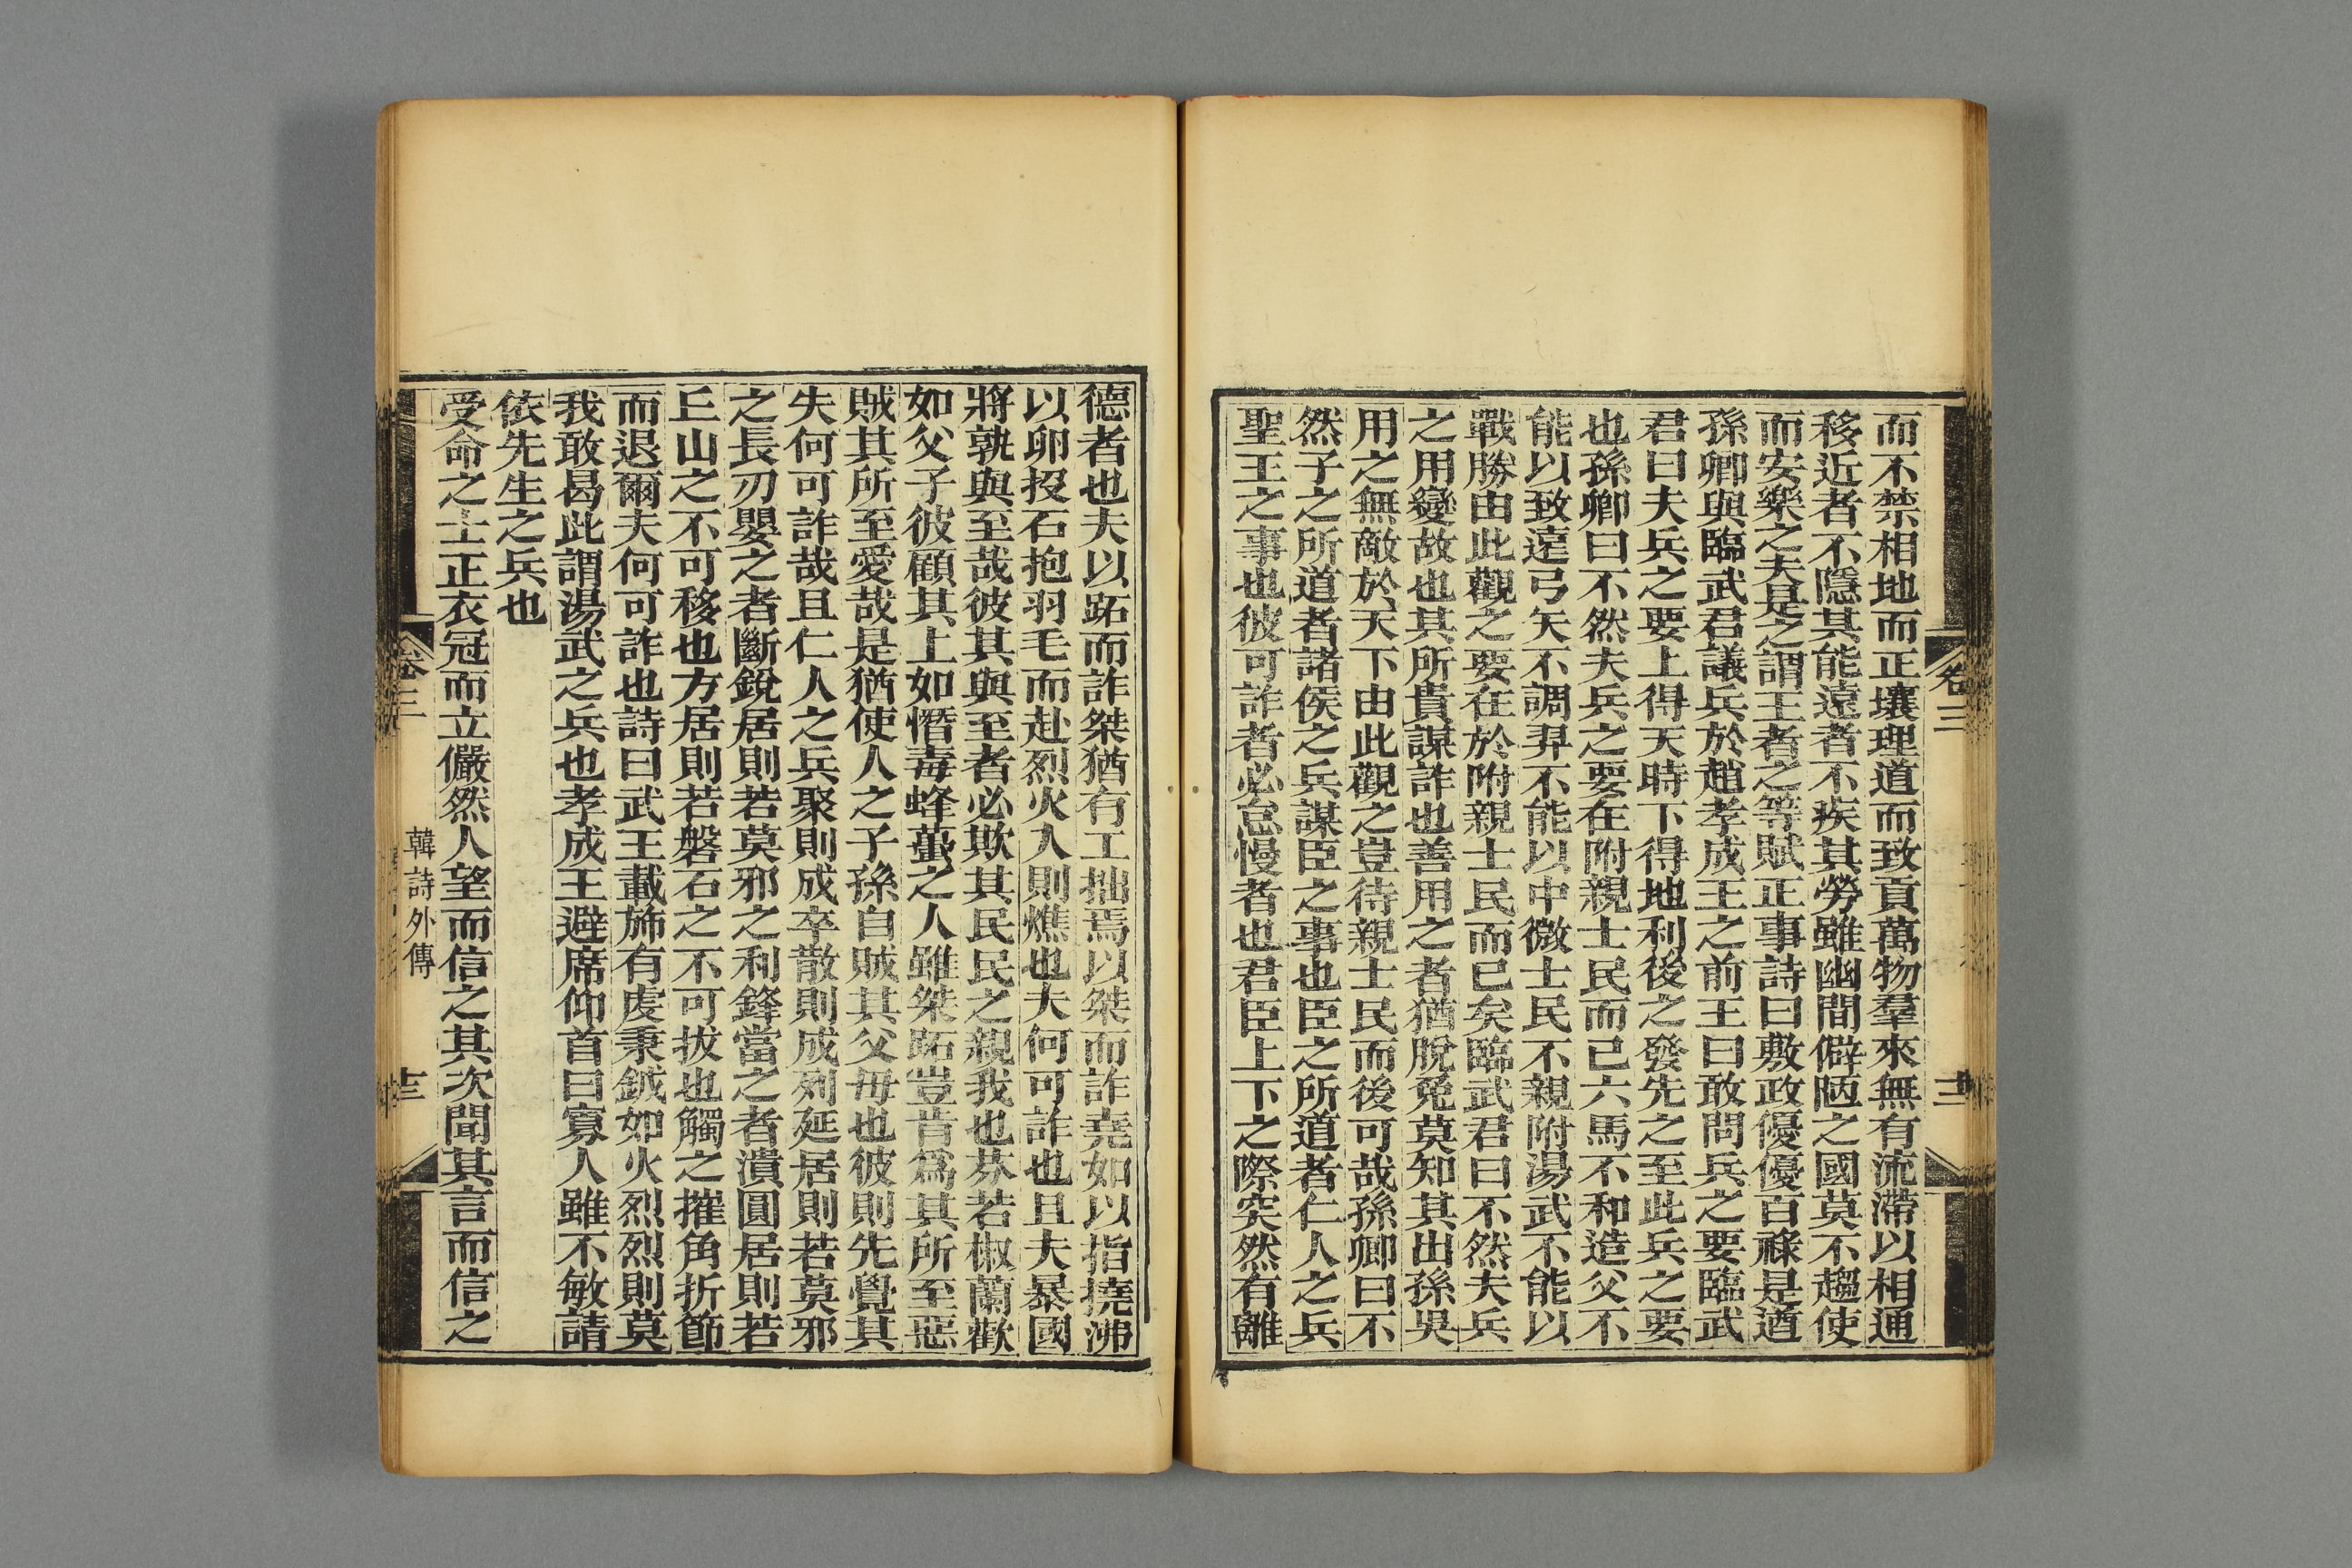 而不禁相地而正壤理道而致貢萬物羣來無有流滯以相通
移近者不隱其能遠者不疾其勞雖幽間僻陋之國莫不趨使
而安樂之夫是之謂王者之等賦正事詩曰敷政優優百祿是遒
孫卿與臨武君議兵於趙孝成王之前王曰敢問兵之要臨武
君曰夫兵之要上得天時下得地利後之發先之至此兵之要
也孫卿曰不然夫兵之要在附親士民而已六馬不和造父不
能以致遠弓矢不調羿不能以中微士民不親附湯武不能以
戰勝由此觀之要在於附親士民而已矣臨武君曰不然夫兵
之用變故也其所貴謀詐也善用之者猶脫兔莫知其出孫吳
用之無敵於天下由此觀之豈待親士民而後可哉孫卿曰不
然子之所道者諸侯之兵謀臣之事也臣之所道者仁人之兵
聖王之事也彼可詐者必怠慢者也君臣上下之際突然有離
卷三
德者也夫以跖而詐桀猶有工拙焉以桀而詐堯如以指撓沸
以卵投石抱羽毛而赴烈火入則燋也夫何可詐也且夫暴國
將孰與至哉彼其與至者必欺其民民之親我也芬若椒蘭歡
如父子彼顧其上如憯毒蜂蠆之人雖桀跖豈肯爲其所至惡
賊其所至愛哉是猶使人之子孫自賊其父母也彼則先覺其
失何可詐哉且仁人之兵聚則成卒散則成列延居則若莫邪
之長刃嬰之者斷銳居則若莫邪之利鋒當之者潰圓居則若
丘山之不可移也方居則若磐石之不可拔也觸之摧角折節
而退爾夫何可詐也詩曰武王載斾有虔秉鉞如火烈烈則莫
我敢曷此謂湯武之兵也孝成王避席仰首曰寡人雖不敏請
依先生之兵也
受命之士正衣冠而立儼然人望而信之其次聞其言而信之
卷三
韓詩外傳